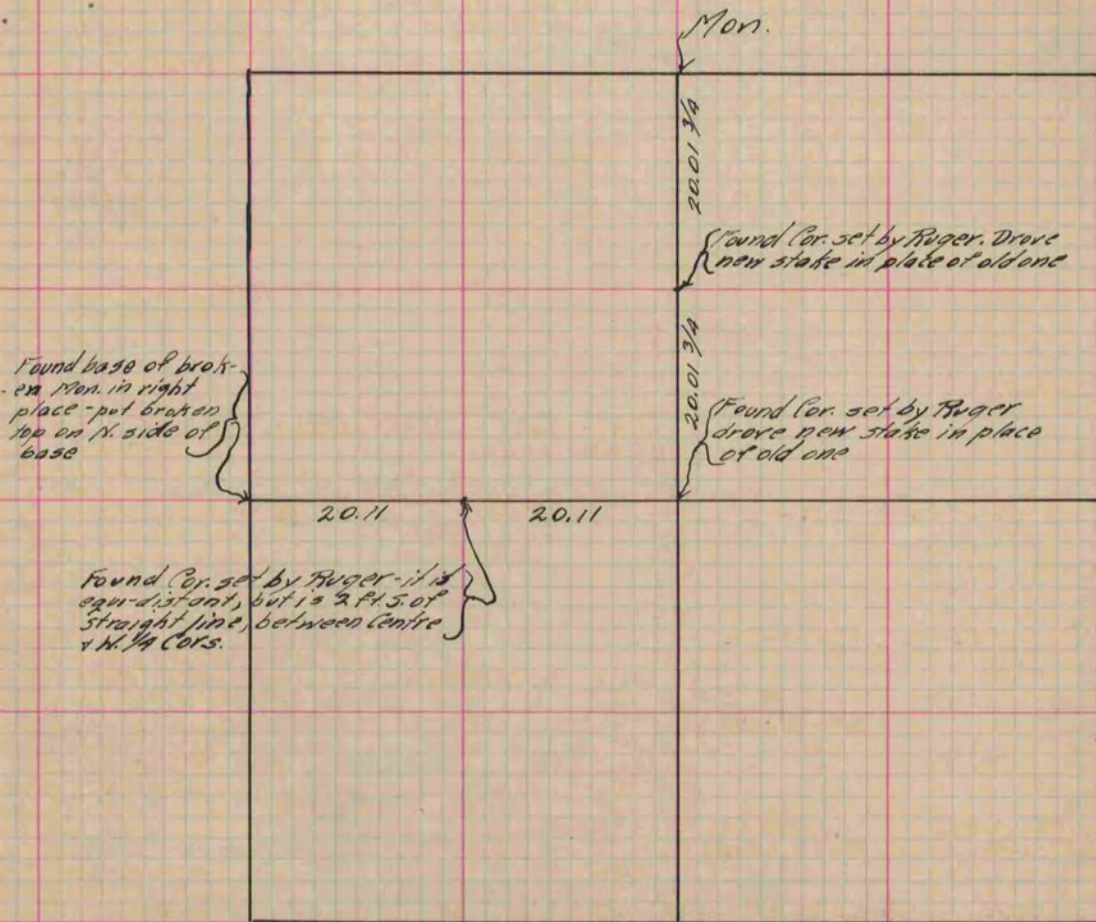 Mon.
20.01 3/4
Found Cor. set by Ruger. Drove
new stake in place of old one
20.01 3/4
Found base of brok-
en Mon. in right
place - put broken
top on N. side of
base
Found Cor. set by Ruger
drove new stake in place
of old one
20.11
20.11
Found Cor. set by Ruger - it is
equi-distant, but is 2 ft. S. of
straight line, between Centre
& W. 1/4 Cors.